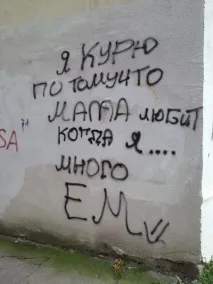 Я КУРЮ
ПО ТОМУЧТО
МАМА ЛЮБИТ
КОГДА Я ....
МНОГО
ЕМ
SA "